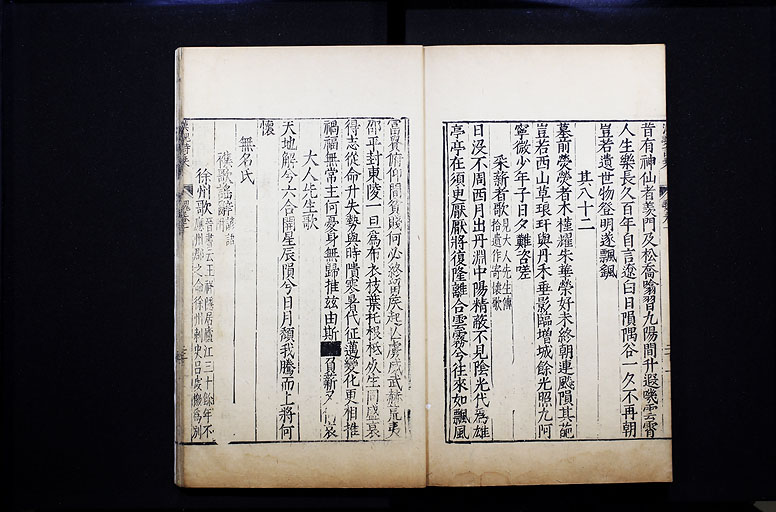 昔有神仙者羨門及松喬噏習九陽間升遐嘰雲霄
人生樂長久百年自言遼白日隕隅谷一夕不再朝
豈若遺世物登明遂飄颻
其八十二
墓前熒熒者木槿耀朱華榮好未終朝連飈隕其葩
豈若西山草琅玕與丹禾垂影臨增城餘光照九阿
寧微少年子日夕難咨嗟
采薪者歌見大人先生傳拾遺作寄懷歌
日沒不周西月出丹淵中陽精蔽不見陰光代為雄
亭亭在須臾厭厭將復隆離合雲霧兮往來如飄風
富貴俯仰間貧賤何必終留侯起亡虜威武赫夷
邵平封東陵一旦為布衣枝葉托根柢死生同盛衰
得志從命升失勢與時隤寒暑代征邁變化更相推
禍福無常主何憂身無歸推茲由斯負薪又何哀
大人先生歌
天地解兮六合開星辰隕兮日月頹我騰而上將何
懷
無名氏
雜歌謠辭
徐州歌晉書云王祥隱居廬江三十餘年不應州郡之命徐州刺史呂虔檄為別